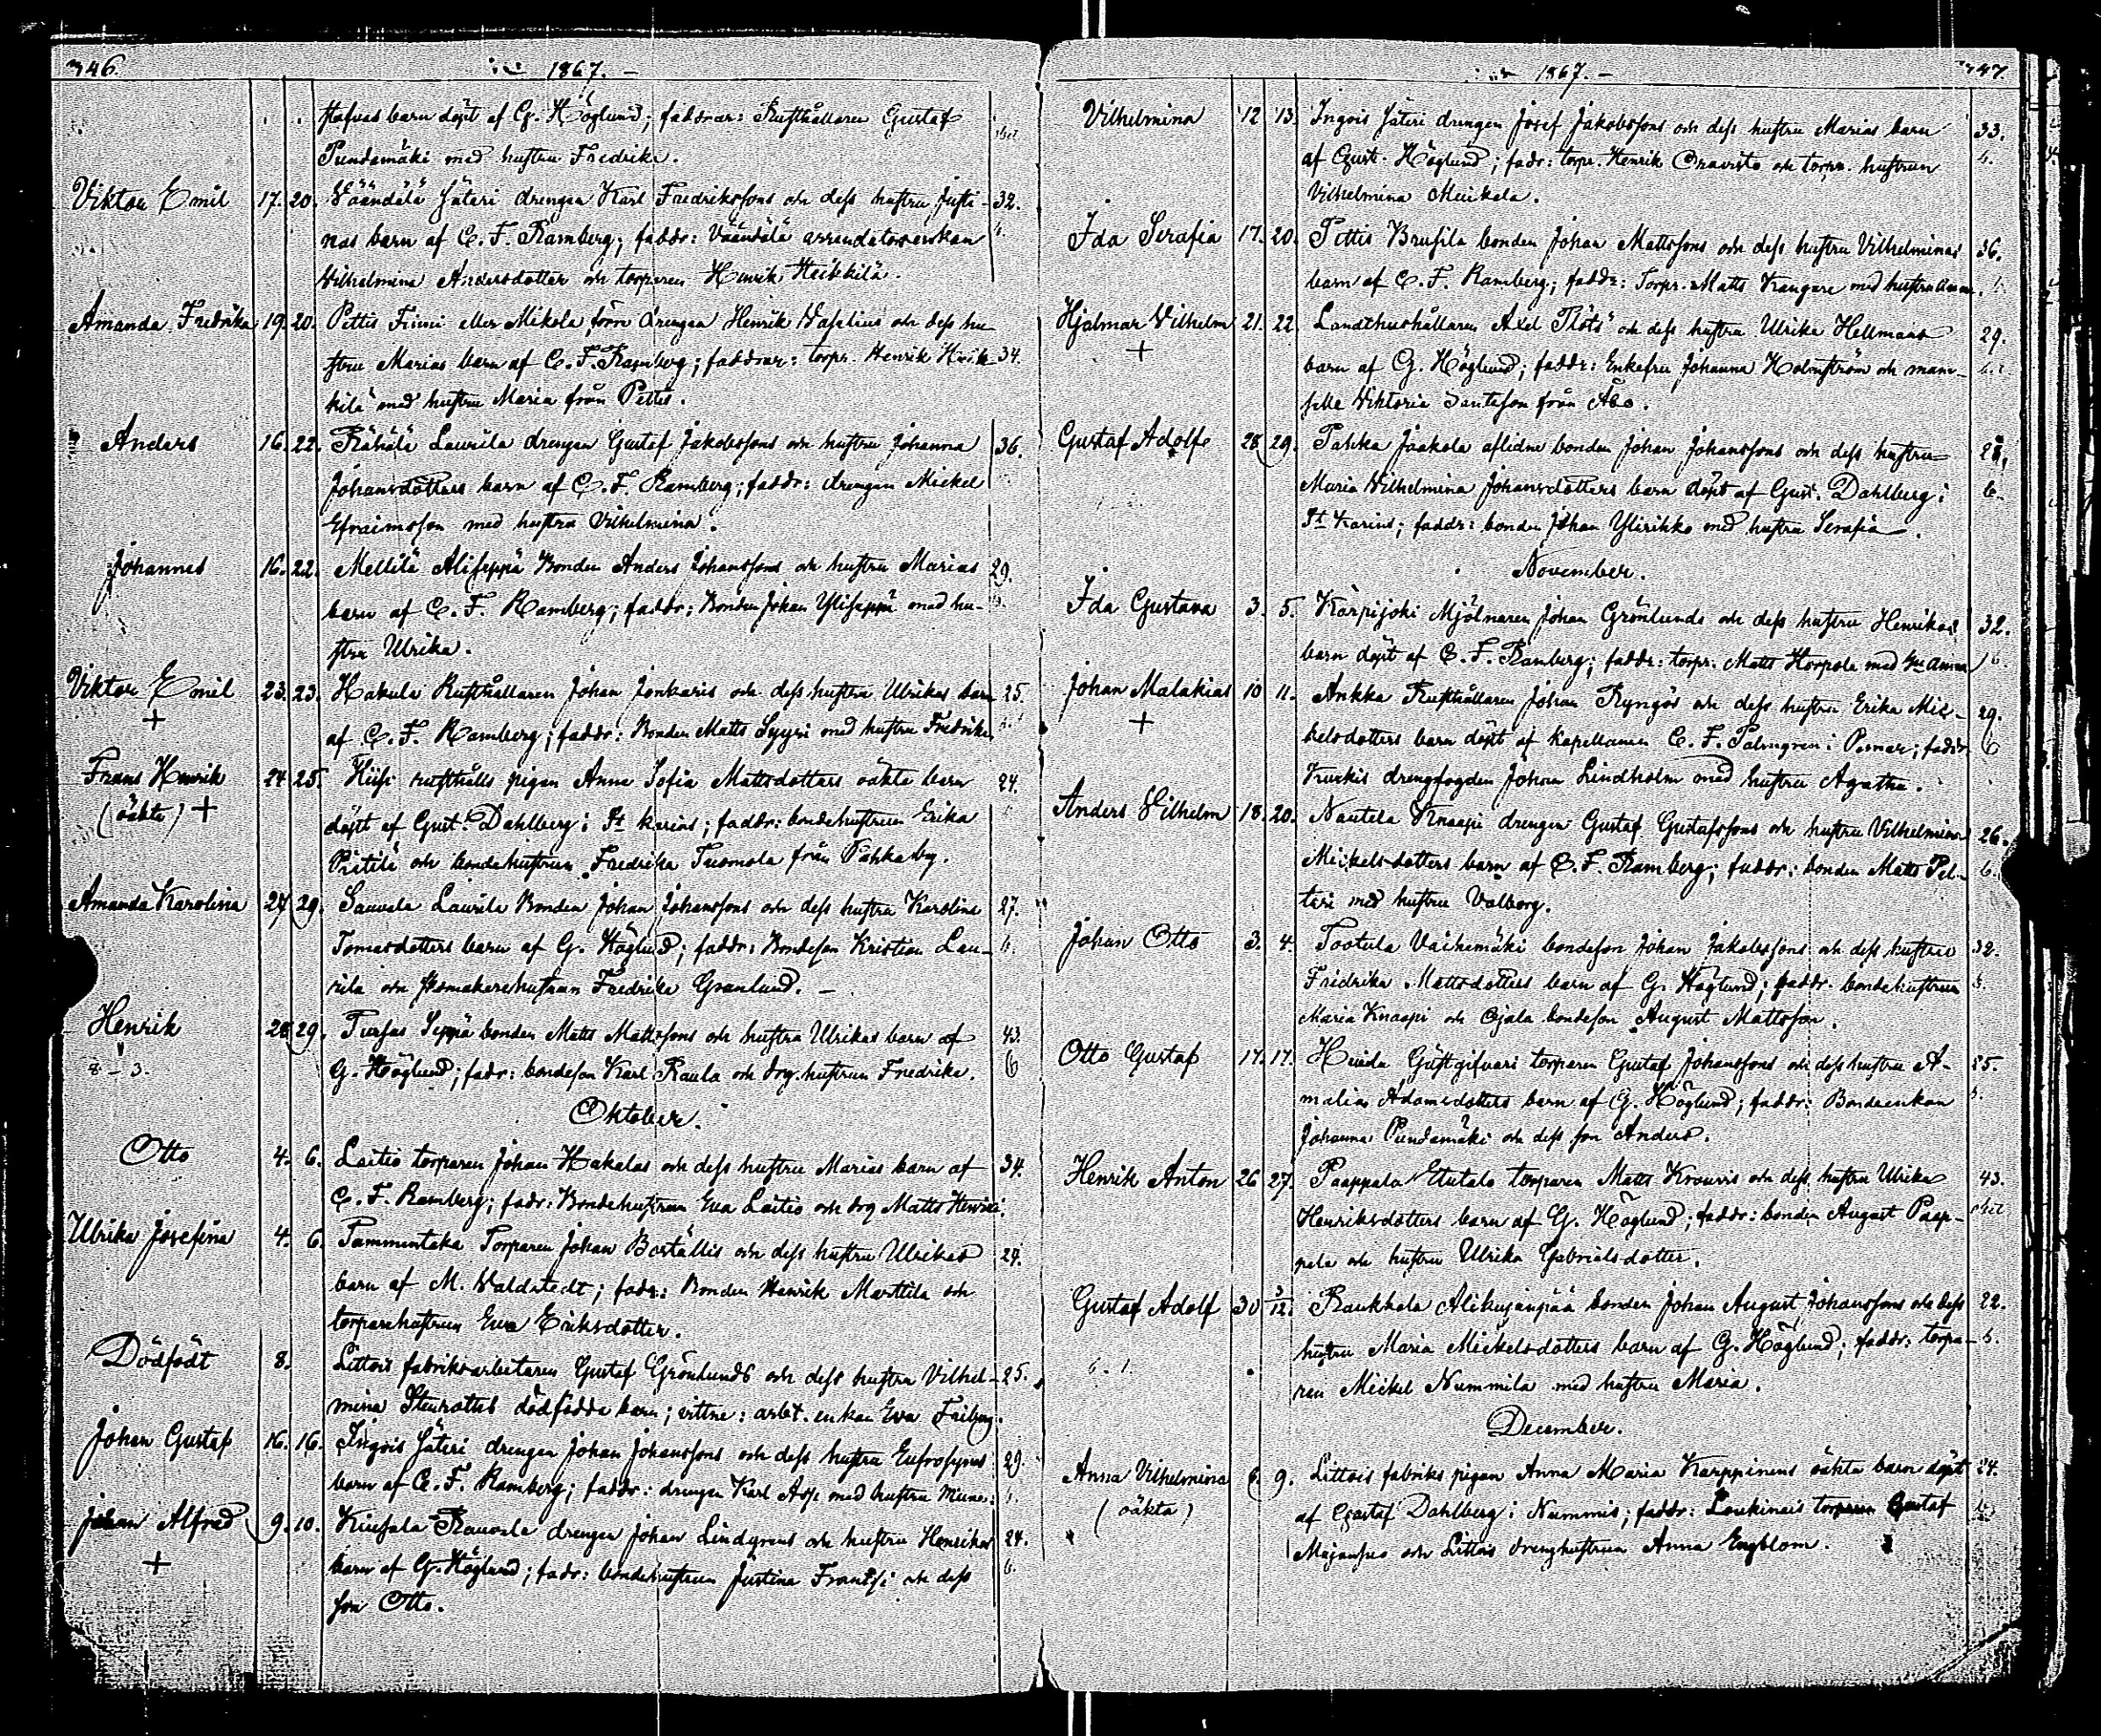 346.
1867.
stafvas barn döpt af G. Höglund; faddrar: Rusthållaren Gustaf
Pundamäki med hustru Fredrika.
Viktor Emil 17. 20. Väändälä Säteri drengen Karl Fredrikssons och dess hustru Justi- 32.
nas barn af C. F. Ramberg; faddr: Väändälä arrendatorsenkan
Vilhelmina Andersdotter och torparen Henrik Heikkilä.
Amanda Fredrika 19. 20. Pettis Finni eller Mikola förre drengen Henrik Vaselius och dess hu-
stru Marias barn af C. F. Ramberg; faddrar: torpr. Henrik Heik- 34.
kilä med hustru Maria från Pettis.
Anders 16. 22. Rähälä Laurila drengen Gustaf Jakobssons och hustru Johanna 36.
Johansdotters barn af C. F. Ramberg; faddr: drengen Mickel
Efraimsson med hustru Vilhelmina.
Johannes 16. 22. Mellilä Aliseppä Bonden Anders Johanssons och hustru Marias 29.
barn af C. F. Ramberg; faddr: Bonden Johan Yliseppä med hu-
stru Ulrika.
Viktor Emil 23. 23. Hakula Rusthållaren Johan Jonkaris och dess hustru Ulrikas barn 25.
+ af C. F. Ramberg; faddr: Bonden Matts Syyri med hustru Fredrika.
Frans Henrik 24. 25. Hiisi rusthålls pigan Anna Sofia Mattsdotters oäkta barn 24.
(oäkta) + döpt af Gust. Dahlberg i St Karins; faddr: bondehustrun Erika
Prittilä och bondehustrun Fredrika Tuomola från Pahka by.
Amanda Karolina 27. 29. Sauvala Laurila Bonden Johan Johanssons och dess hustru Karolina 27.
Tomasdotters barn af G. Höglund; faddr: Bondeson Kristian Lau- 6.
rila och skomakarehustrun Fredrika Granlund. —
Henrik 28. 29. Tursas Seppä bonden Matts Mattssons och hustru Ulrikas barn af 43.
8 - 3. G. Höglund; fadr: bondeson Karl Raula och drg. hustrun Fredrika. 6
Oktober.
Otto 4. 6. Laitio torparen Johan Hakalas och dess hustru Marias barn af 34.
C. F. Ramberg; fadr: Bondehustrun Eva Laitio och drg Matts
Ulrika Josefina 4. 6. Tammintaka Torparen Johan Boställis och dess hustru Ulrikas 24.
barn af M. Waldstedt; fadr: Bonden Henrik Marttila och
torparehustrun Eva Eriksdotter.
Dödfödt 8. Littois fabriksarbetaren Gustaf Grönlunds och dess hustru Vilhel- 25.
mina Stenroths dödfödda barn; vittne: arbt. enkan Eva Friberg.
Johan Gustaf 16. 16. Ingois Säteri drengen Johan Johanssons och dess hustru Eufrosynes 29.
barn af C. F. Ramberg; faddr: drengen Karl med hustru
Johan Alfred 9. 10. Kiusala Rauvala drengen Johan Lindgrens och hustru Henrikas 24.
+ barn af G. Höglund; fadr: bondehustrun Justina Frantsi och dess 6.
son Otto.
1867.
347.
Vilhelmina 12 13. Ingois Säteri drengen Josef Jakobssons och dess hustru Marias barn 33.
af Gust. Höglund; fadr: torpr. Henrik Oravisto och torpr. hustrun 6.
Vilhelmina Meikala.
Ida Serafia 17. 20. Pettis Brusila bonden Johan Mattssons och dess hustru Vilhelminas 36.
barn af C. F. Ramberg; faddr: Torpr. Matts Kangare med hustru Anna.
Hjalmar Vilhelm 21. 22. Landthushållaren Axel Plöts och dess hustru Ulrika Hellmans 29.
+ barn af G. Höglund; faddr: Enkefru Johanna Holmström och mam-
selle Viktoria från Åbo.
Gustaf Adolf 28. 29. Pahka Jaakola aflidne bonden Johan Johanssons och dess hustru 28.
Maria Vilhelmina Johansdotters barn döpt af Gust. Dahlberg i 6.
St Karins; faddr: bonden Johan Ylirikko med hustru Serafia.
November.
Ida Gustava 3. 5. Karpijoki Mjölnaren Johan Grönlunds och dess hustru Henrikas 32.
barn döpt af C. F. Ramberg; faddr: torpr. Matts Horpola med Hu Anna 6.
Johan Malakias 10 11. Ankka Rusthållaren Johan Ryngös och dess hustru Erika Mic- 29.
+ kelsdotters barn döpt af kapellanen C. F. Palmgren i Pemar; faddr. 6
Kurkis drengfogden Johan Lindholm med hustru Agatha.
Anders Vilhelm 18. 20. Nautela Knaapi drengen Gustaf Gustafssons och hustru Vilhelmina 26.
Mickelsdotters barn af C. F. Ramberg; faddr: bonden Matts Pel- 6.
tari med hustru Valborg.
Johan Otto 3. 4. Tootula Vaihemäki bondeson Johan Jakobssons och dess hustru 32.
Fredrika Mattsdotters barn af G. Höglund; faddr. bondehustrun 6.
Maria Knaapi och Ojala bondeson August Mattsson.
Otto Gustaf 17. 17. Huida Gästgifvari torparen Gustaf Johanssons och dess hustru A- 25.
malias Adamsdotters barn af G. Höglund; faddr: Bondeenkan
Johanna Pundamäki och dess son Anders.
Henrik Anton 26 27. Paappala Eutala torparen Matts Krouvis och dess hustru Ulrika 43.
Henriksdotters barn af G. Höglund; faddr: bonden August Paap-
pala och hustru Ulrika Gabrielsdotter.
Gustaf Adolf 30 3/12. Raukkala Alikujanpää bonden Johan August Johanssons och dess 22.
hustru Maria Mickelsdotters barn af G. Höglund; faddr: torpa- 6.
ren Mickel Nummila med hustru Maria.
December.
Anna Vilhelmina 6. 9. Littois fabriks pigan Anna Maria Karppinens oäkta barn döpt 24.
(oäkta) af Gustaf Dahlberg i Nummis; faddr: Loukinais torparen Gustaf
Majanpes och Littois drenghustrun Anna Engblom.